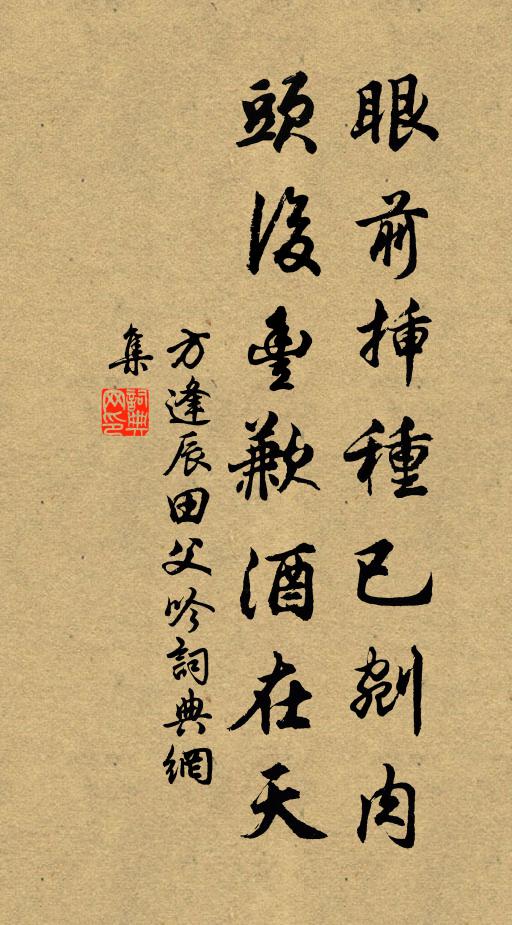 眼前挿種已剜肉
頭後豐歉酒在天
方逢辰田父吟詞典網
集
詞典
网印